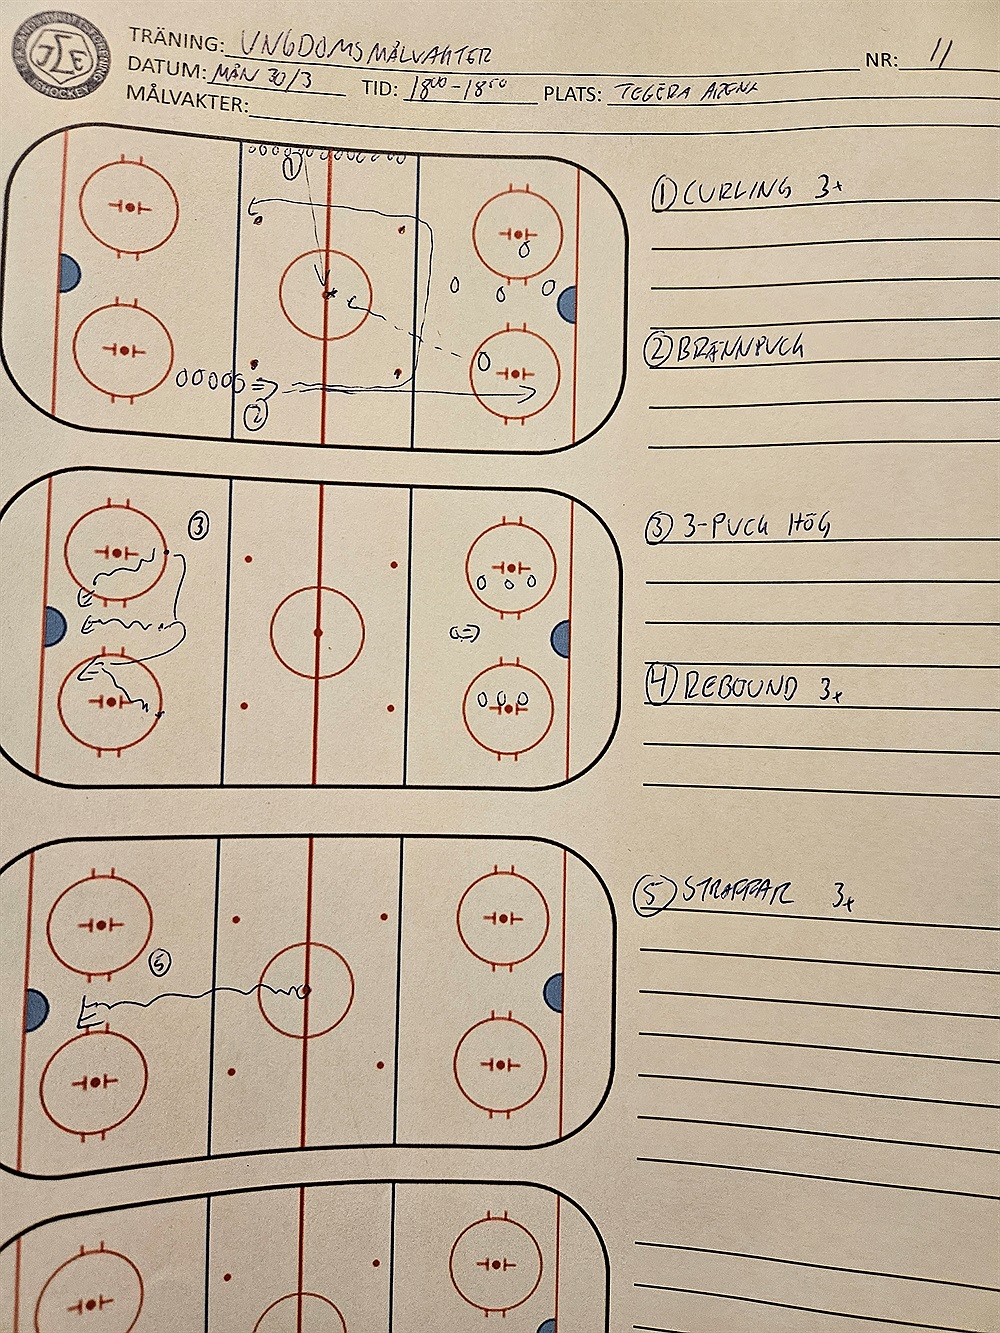 TRÄNING: UNGDOMSMÅLVAKTER NR: 11
DATUM: MÅN 30/3 TID: 18⁰⁰-18⁵⁰ PLATS: TEGERA ARENA
MÅLVAKTER:
ISHOCKEY
① CURLING 3x
② BRÄNNPUCK
③ 3-PUCK HÖG
④ REBOUND 3x
⑤ STRAFFAR 3x
①
②
③
⑤